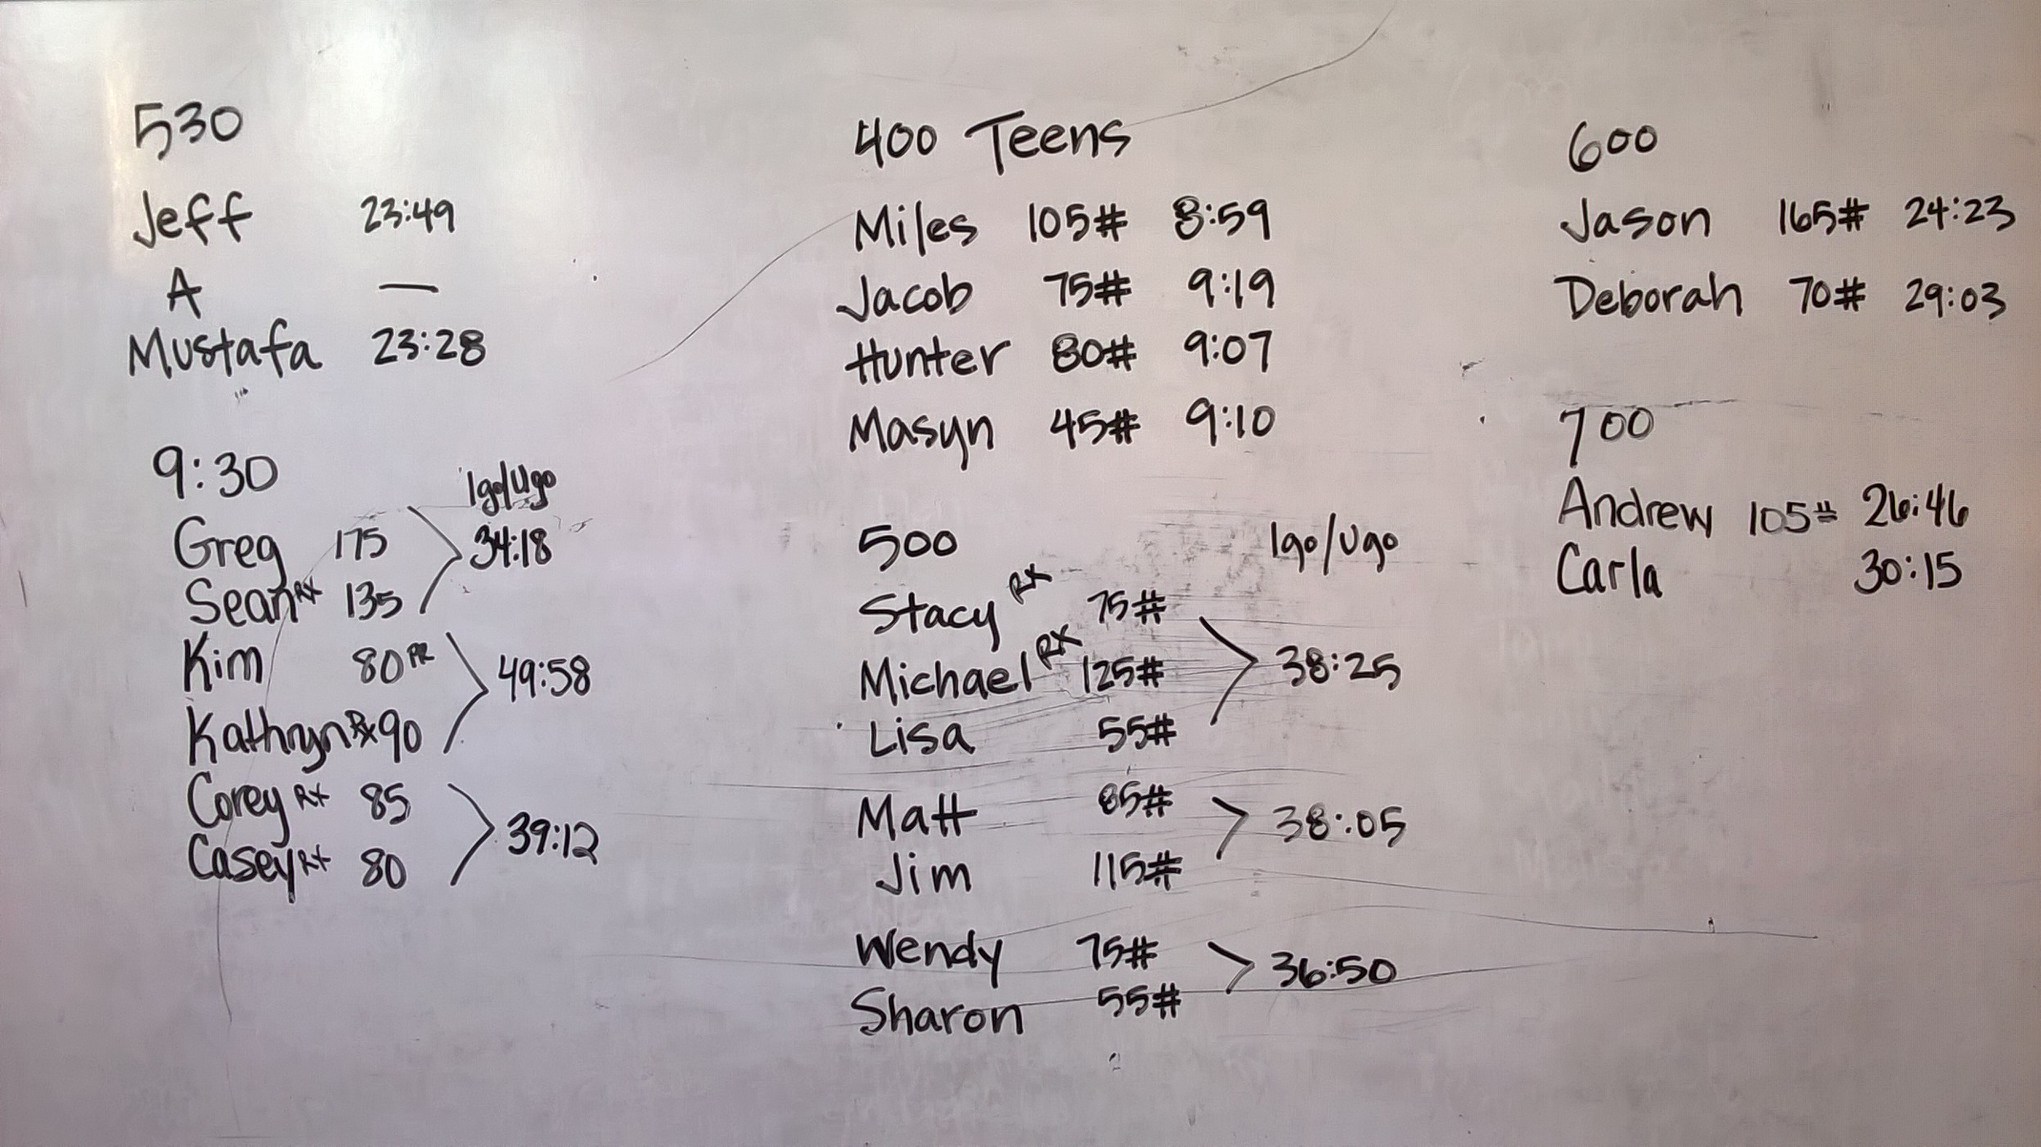 530
Jeff 23:49
A —
Mustafa 23:28
9:30
Igo/Ugo
Greg 175
34:18
Sean RX 135
Kim 80 PR
49:58
Kathryn RX 90
Corey RX 85
39:12
Casey RX 80
400 Teens
Miles 105# 8:59
Jacob 75# 9:19
Hunter 80# 9:07
Masyn 45# 9:10
500 Igo/Ugo
Stacy RX 75#
Michael RX 125# 38:25
Lisa 55#
Matt 85#
38:05
Jim 115#
Wendy 75#
36:50
Sharon 55#
600
Jason 165# 24:23
Deborah 70# 29:03
700
Andrew 105# 26:46
Carla 30:15